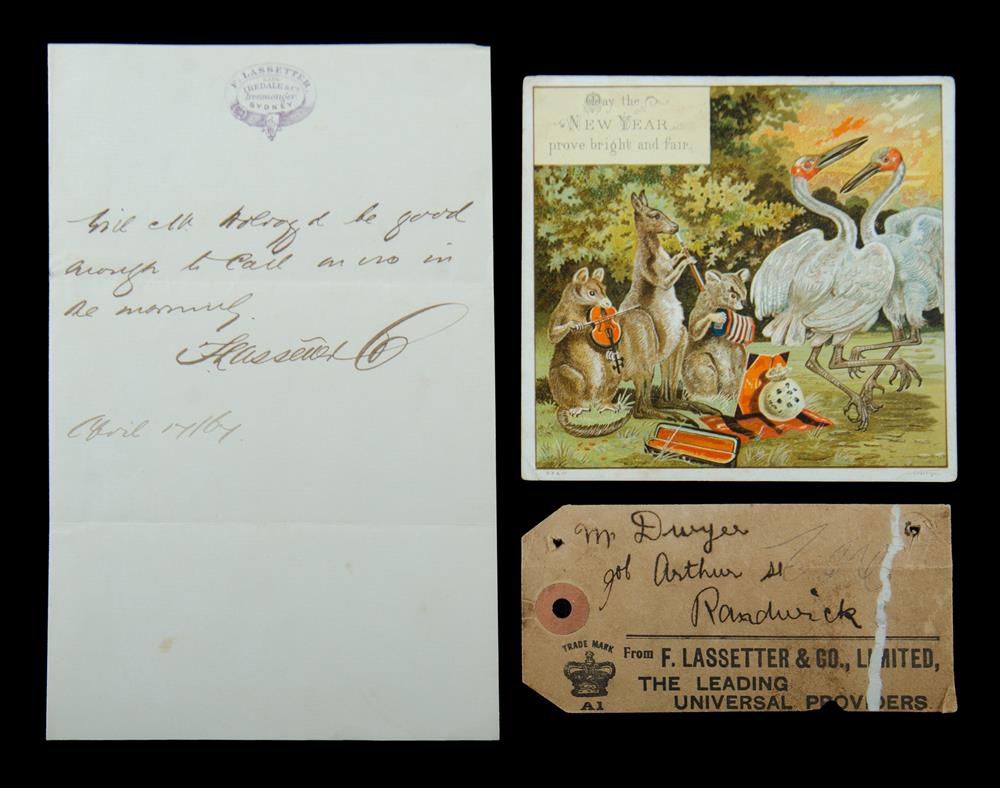 F. LASSETTER.
LATE
IREDALE & Co
Ironmonger
SYDNEY
Will Mr be good
enough to call on us in
the morning.
F Lassetter & Co
April 17/67
May the
NEW YEAR
prove bright and fair.
Mr Dwyer
job Arthur St
Randwick
TRADE MARK
A1
From F. LASSETTER & CO., LIMITED,
THE LEADING
UNIVERSAL PROVIDERS